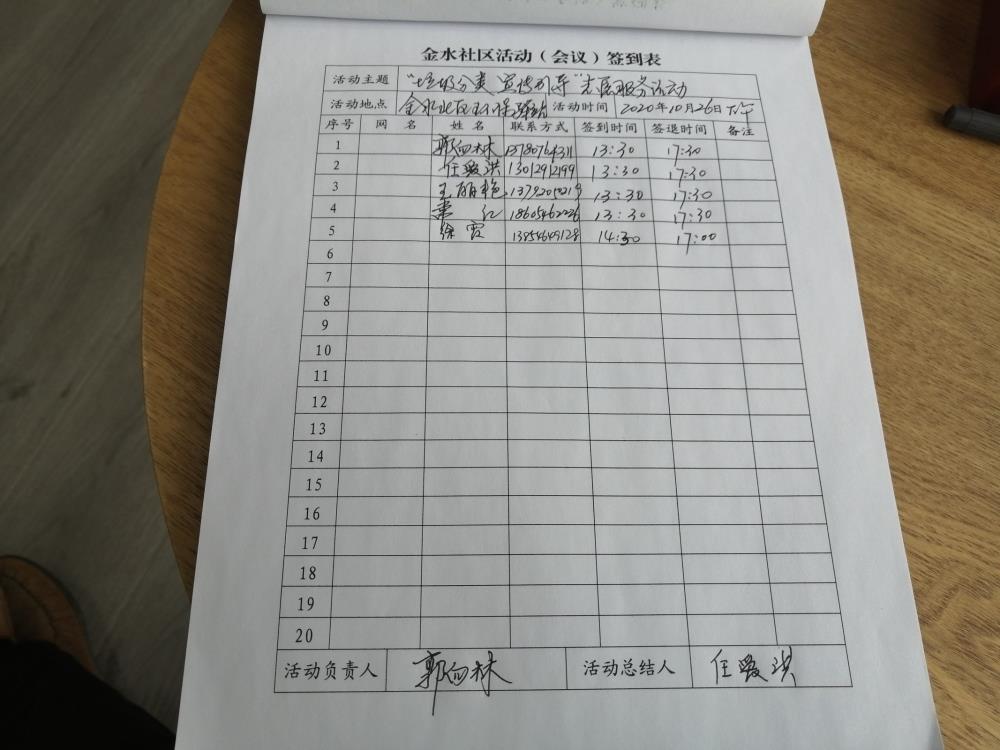 金水社区活动（会议）签到表
活动主题 “垃圾分类 宣传引导”志愿服务活动
活动地点 金水社区环保驿站 活动时间 2020年10月26日下午
序号 网 名 姓 名 联系方式 签到时间 签退时间 备注
1 郭向林 13:30 17:30
2 任爱洪 13012912199 13:30 17:30
3 王丽艳 13:30 17:30
4 红 18605462226 13:30 17:30
5 徐霞 13954649128 14:30 17:00
6
7
8
9
10
11
12
13
14
15
16
17
18
19
20
活动负责人 郭向林 活动总结人 任爱洪